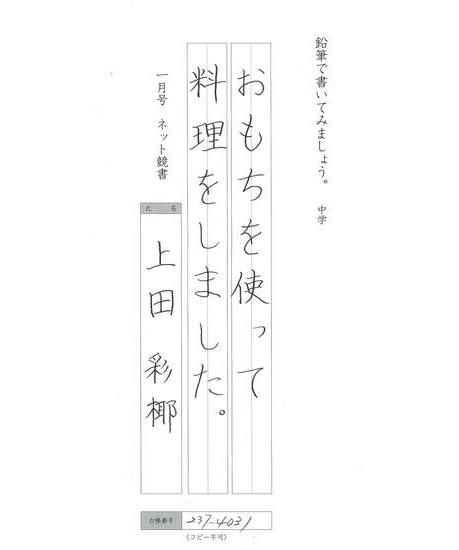 鉛筆で書いてみましょう。 中学
おもちを使って
料理をしました。
一月号 ネット競書
氏 名
上田 彩椰
台帳番号 237-4031
(コピー不可)